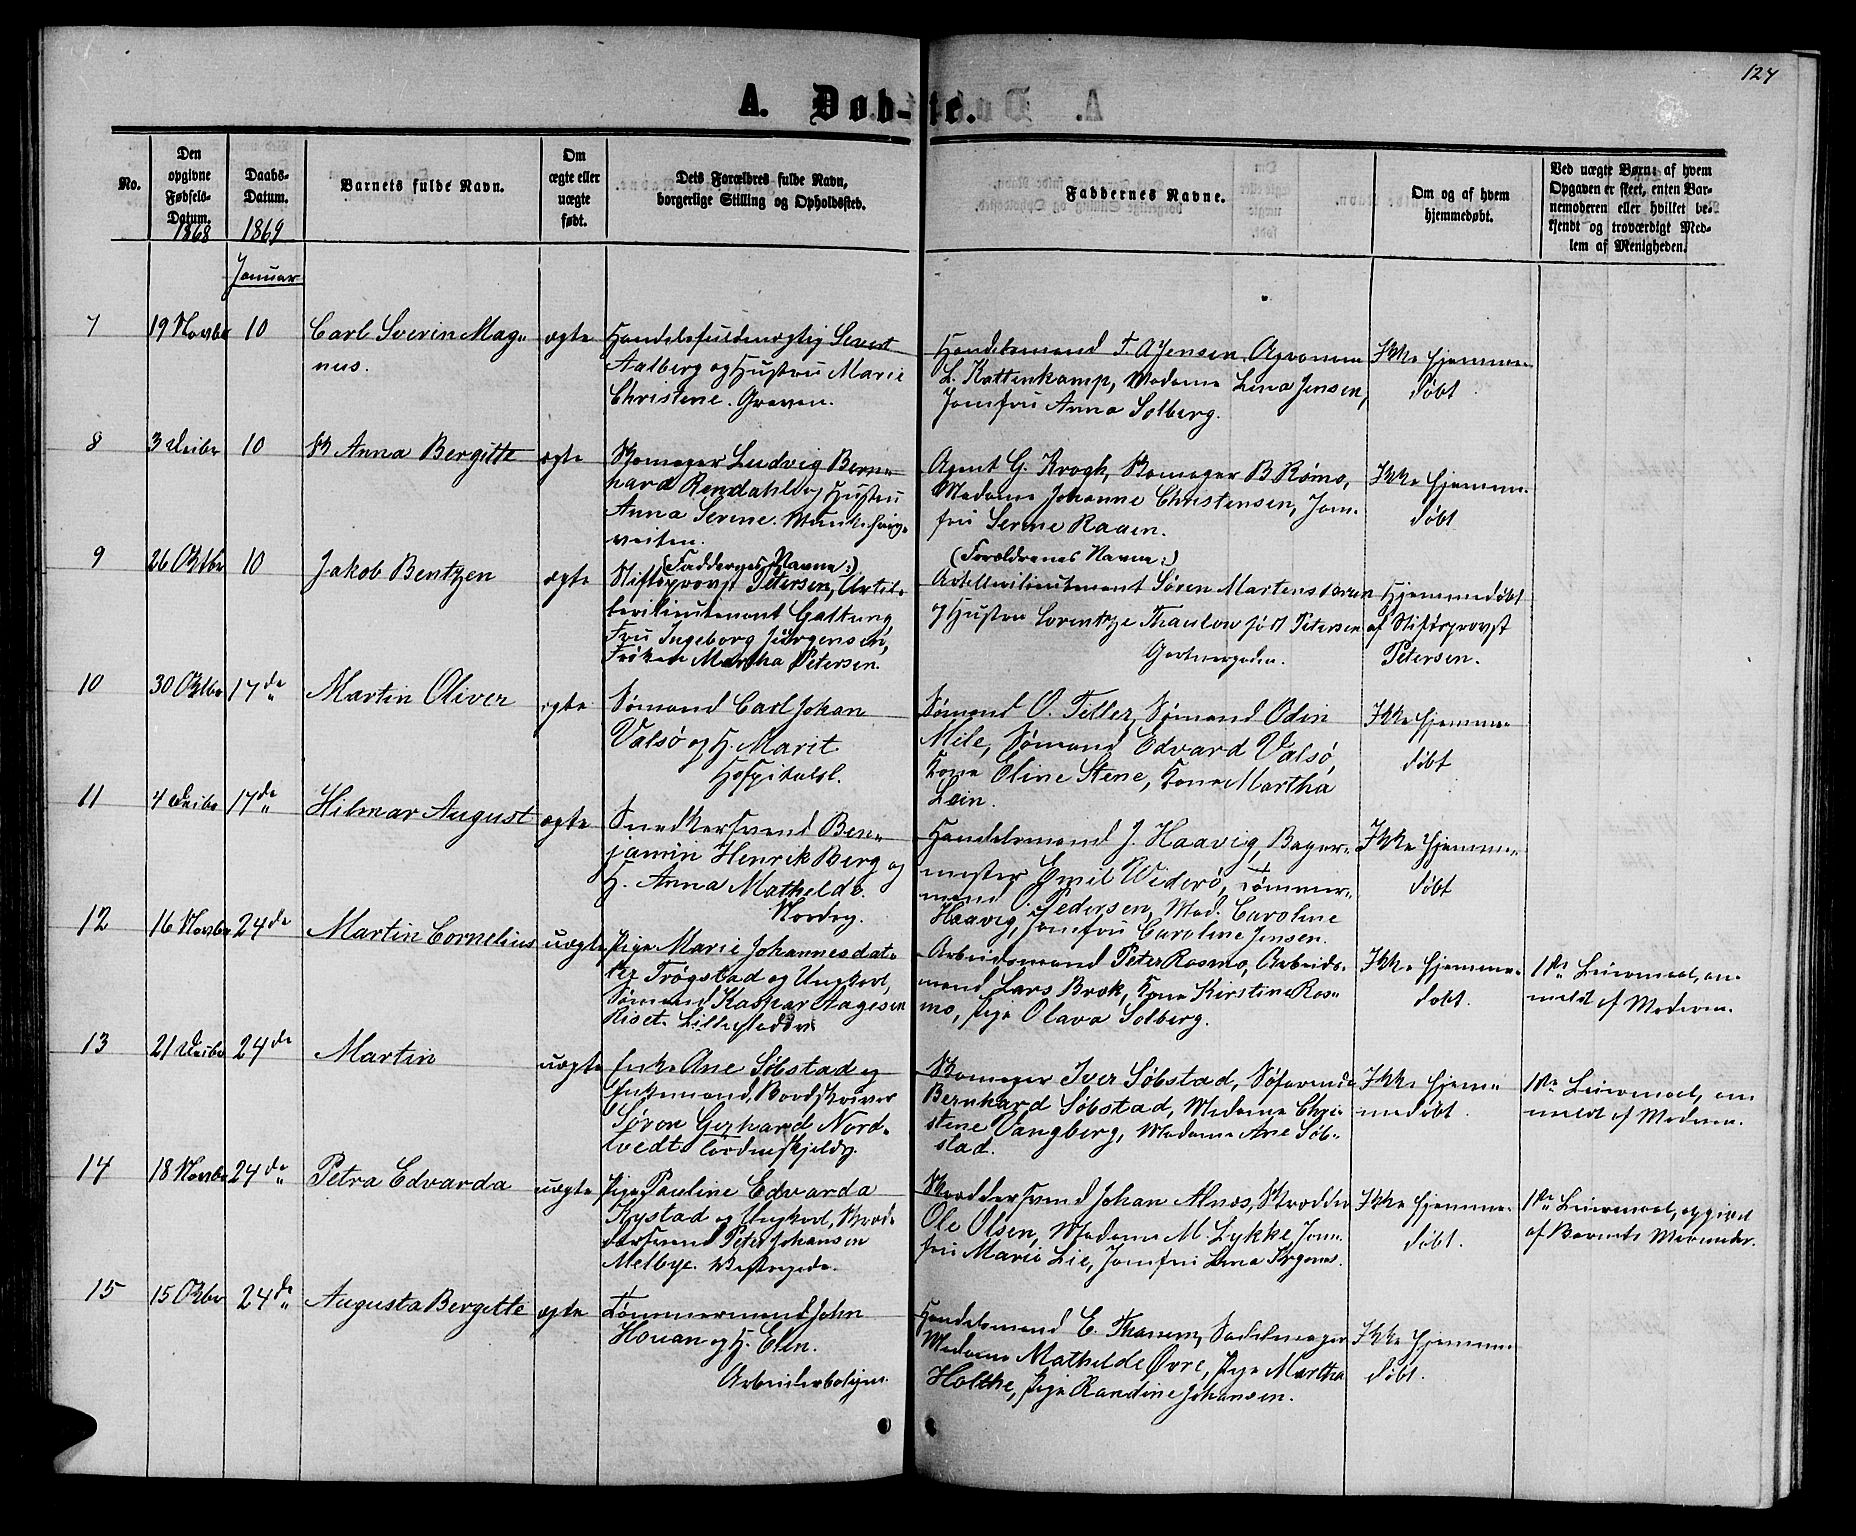 124
A. Døb-te.
No.
Den opgivne Fødsels-Datum.
1868
Daabs-Datum.
1869
Barnets fulde Navn.
Om ægte eller uægte født.
Dets Forældres fulde Navn, borgerlige Stilling og Opholdssted.
Faddernes Navne.
Om og af hvem hjemmedøbt.
Ved uægte Børn: af hvem Opgaven er skeet, enten Barnemoderen eller hvilket bekjendt og troværdigt Medlem af Menigheden.
Januar
7
19 Novbr
10
Carl Sverin Mag-
nus.
ægte
Handelsfuldmægtig Sivert
Aalberg og Hustru Marie
Christine. Graven.
Handelsmand F. A Jensen, Agronom
L. Kattenkamp, Madame Lina Jensen,
Jomfru Anna Solberg.
Ikke hjemme-
døbt.
8
3 Decbr
10
Anna Bergitte
ægte
Skomager Ludvig Bern-
hard Rendahl og Hustru
Anna Serine. Munkhaug-
veiten.
Agent G. Krogh, Skomager B Rømo,
Madame Johanne Christensen, Jom-
fru Serine Raaen.
Ikke hjemme-
døbt
9
26 Oktbr
10
Jakob Bentzen
ægte
(Faddernes Navne:)
Stiftsprovst Petersen, Artil-
lerilieutenant Galtung,
Fru Ingeborg Jürgensen,
Frøken Martha Petersen.
(Forældrenes Navne:)
Artillerilieutenant Søren Martens Sørensen
og Hustru Lorentze Thaulow født Petersen
Gartnergaden.
Hjemmedøbt
af Stiftsprovst
Petersen.
10
30 Oktbr
17de
Martin Oliver
ægte
Sømand Carl Johan
Valsø og H. Marit
Hospitalsl.
Sømand O. Teller, Sømand Odin
Mile, Sømand Edvard Valsø,
Kone Oline Stene, Kone Martha
Lein.
Ikke hjemme-
døbt
11
4 Decbr
17de
Hilmar August
ægte
Snedkersvend Ben-
jamin Henrik Berg og
H. Anna Mathilde.
Nordrg.
Handelsmand J. Haavig, Bager-
mester Emil Widerø, Tømmer-
mand Pedersen, Mad. Caroline
Haavig, Jomfru Caroline Jensen.
Ikke hjemme-
døbt
12
16 Novbr
24de
Martin Cornelius
uægte
Pige Marie Johannesdat-
ter Trøgstad og Ungkarl,
Sømand Kaspar Aagesen
Riset. Lillegaden
Arbeidsmand Peter Rosmo, Arbeids-
mand Lars Brok, Kone Kirstine Ros-
mo, Pige Olava Solberg.
Ikke hjemme-
døbt.
1ste Leiermaal, an-
meldt af Moderen.
13
21 Decbr
24de
Martin
uægte
Enke Ane Søbstad og
Enkemand, Bordskriver
Søren Gerhard Nord-
tvedt. Tordenskjoldsg.
Skomager Iver Søbstad, Søfarende
Bernhard Søbstad, Madame Chri-
stine Vangberg, Madame Ane Søb-
stad.
Ikke hjem-
medøbt.
1ste Leiermaal, an-
meldt af Moderen.
14
18 Novbr
24de
Petra Edvarda
uægte
Pige Pauline Edvarda
Rystad og Ungkarl, Skræd-
dersvend Peter Johansen
Melbye. Bersvegade.
Skræddersvend Johan Alnæs, Skrædder
Ole Olsen, Madame M. Lykke, Jom-
fru Marie Lie, Jomfru Lena
Ikke hjemme-
døbt.
1ste Leiermaal, opgivet
af Barnets Mormoder.
15
15 Oktbr
24de
Augusta Bergitte
ægte
Tømmermand John
Houan og H. Elen.
Arbeiderboliger.
Handelsmand E. Thanem, Sadelmager
Madame Mathilde Øvre, Pige Martha
Holthe, Pige Randine Johansen.
Ikke hjemme-
døbt.